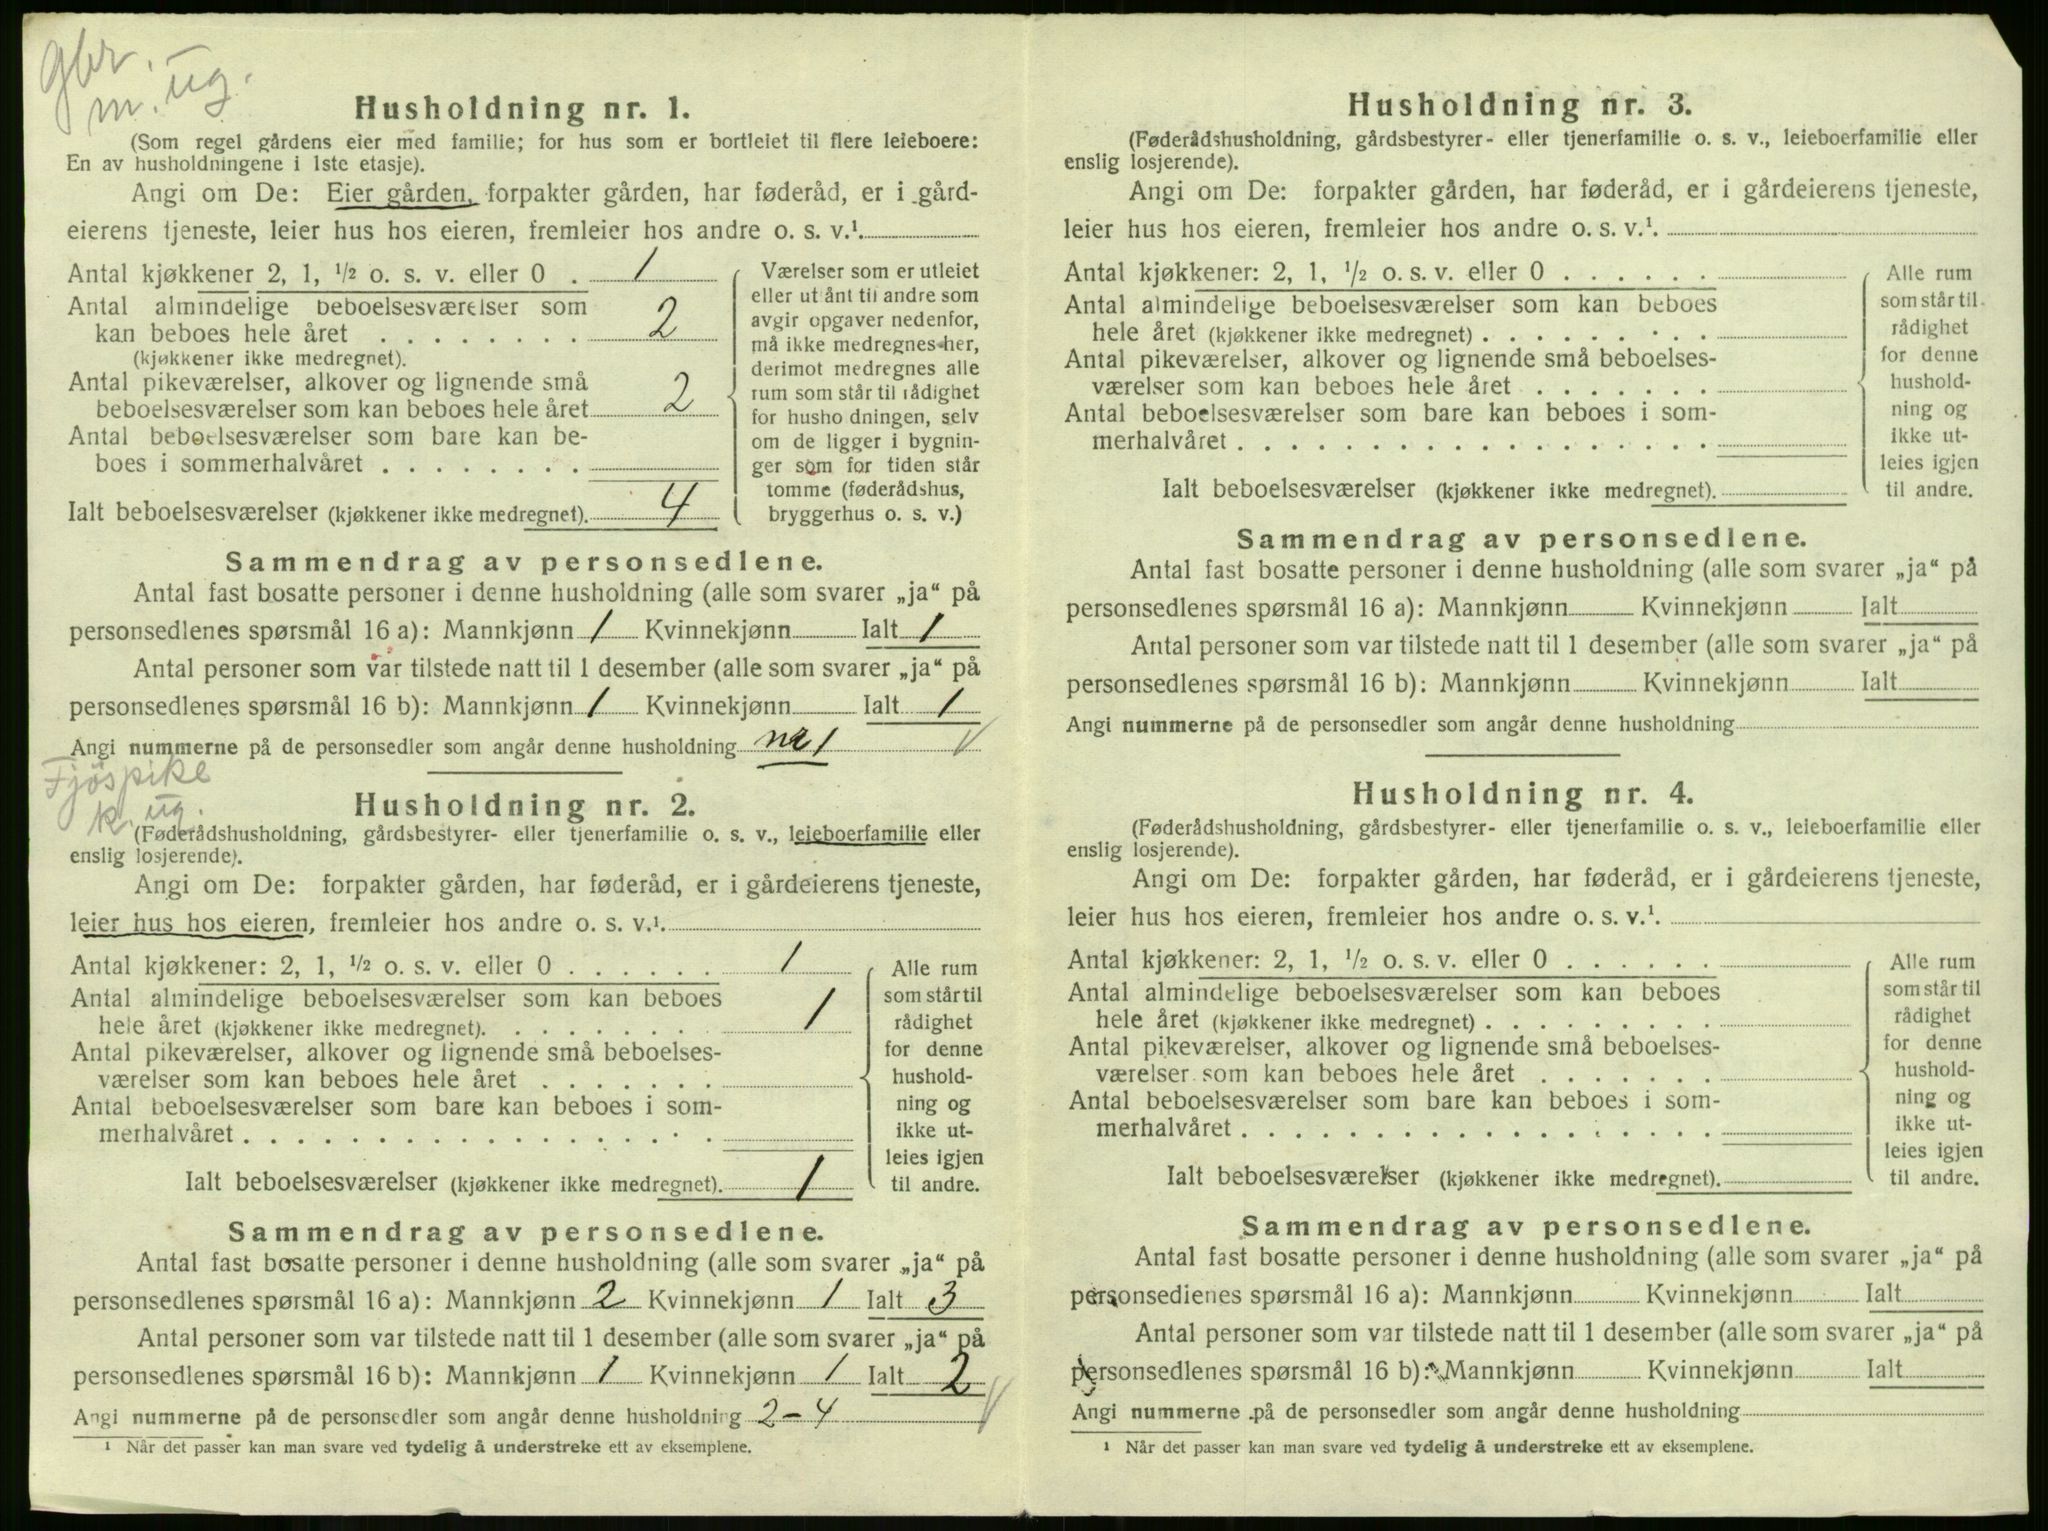 gbr.
m. ug.
Husholdning nr. 1.
(Som regel gårdens eier med familie; for hus som er bortleiet til flere leieboere:
En av husholdningene i 1ste etasje).
Angi om De: Eier gården, forpakter gården, har føderåd, er i gård-
eierens tjeneste, leier hus hos eieren, fremleier hos andre o. s. v.¹
Antal kjøkkener 2, 1, 1/2 o. s. v. eller 0 . 1
Antal almindelige beboelsesværelser som
kan beboes hele året . . . . . . . . 2
(kjøkkener ikke medregnet).
Antal pikeværelser, alkover og lignende små
beboelsesværelser som kan beboes hele året 2
Antal beboelsesværelser som bare kan be-
boes i sommerhalvåret . . . . . . . .
Ialt beboelsesværelser (kjøkkener ikke medregnet). 4
Værelser som er utleiet
eller ut ånt til andre som
avgir opgaver nedenfor,
må ikke medregnes her,
derimot medregnes alle
rum som står til rådighet
for husho dningen, selv
om de ligger i bygnin-
ger som for tiden står
tomme (føderådshus,
bryggerhus o. s. v.)
Sammendrag av personsedlene.
Antal fast bosatte personer i denne husholdning (alle som svarer „ja“ på
personsedlenes spørsmål 16 a): Mannkjønn 1 Kvinnekjønn Ialt 1
Antal personer som var tilstede natt til 1 desember (alle som svarer „ja“ på
personsedlenes spørsmål 16 b): Mannkjønn 1 Kvinnekjønn Ialt 1
Angi nummerne på de personsedler som angår denne husholdning nr 1
Fjøspike
k. ug.
Husholdning nr. 2.
(Føderådshusholdning, gårdsbestyrer- eller tjenerfamilie o. s. v., leieboerfamilie eller
enslig losjerende).
Angi om De: forpakter gården, har føderåd, er i gårdeierens tjeneste,
leier hus hos eieren, fremleier hos andre o. s. v.¹
Antal kjøkkener: 2, 1, 1/2 o. s. v. eller 0 . . . . . . 1
Antal almindelige beboelsesværelser som kan beboes
hele året (kjøkkener ikke medregnet). . . . . . . . . 1
Antal pikeværelser, alkover og lignende små beboelses-
værelser som kan beboes hele året . . . . . . .
Antal beboelsesværelser som bare kan beboes i som-
merhalvåret . . . . . . . . . . . . . . . . . .
Ialt beboelsesværelser (kjøkkener ikke medregnet). 1
Alle rum
som står til
rådighet
for denne
hushold-
ning og
ikke ut-
leies igjen
til andre.
Sammendrag av personsedlene.
Antal fast bosatte personer i denne husholdning (alle som svarer „ja“ på
personsedlenes spørsmål 16 a): Mannkjønn 2 Kvinnekjønn 1 Ialt 3
Antal personer som var tilstede natt til 1 desember (alle som svarer „ja“ på
personsedlenes spørsmål 16 b): Mannkjønn 1 Kvinnekjønn 1 Ialt 2
Angi nummerne på de personsedler som angår denne husholdning 2-4
¹ Når det passer kan man svare ved tydelig å understreke ett av eksemplene.
Husholdning nr. 3.
(Føderådshusholdning, gårdsbestyrer- eller tjenerfamilie o. s. v., leieboerfamilie eller
enslig losjerende).
Angi om De: forpakter gården, har føderåd, er i gårdeierens tjeneste,
leier hus hos eieren, fremleier hos andre o. s. v.¹
Antal kjøkkener: 2, 1, 1/2 o. s. v. eller 0 . . . . . .
Antal almindelige beboelsesværelser som kan beboes
hele året (kjøkkener ikke medregnet) . . . . . . . . .
Antal pikeværelser, alkover og lignende små beboelses-
værelser som kan beboes hele året . . . . . . .
Antal beboelsesværelser som bare kan beboes i som-
merhalvåret . . . . . . . . . . . . . . . . . .
Ialt beboelsesværelser (kjøkkener ikke medregnet).
Alle rum
som står til
rådighet
for denne
hushold-
ning og
ikke ut-
leies igjen
til andre.
Sammendrag av personsedlene.
Antal fast bosatte personer i denne husholdning (alle som svarer „ja“ på
personsedlenes spørsmål 16 a): Mannkjønn Kvinnekjønn Ialt
Antal personer som var tilstede natt til 1 desember (alle som svarer „ja“ på
personsedlenes spørsmål 16 b): Mannkjønn Kvinnekjønn Ialt
Angi nummerne på de personsedler som angår denne husholdning
Husholdning nr. 4.
(Føderådshusholdning, gårdsbestyrer- eller tjenerfamilie o. s. v., leieboerfamilie eller
enslig losjerende).
Angi om De: forpakter gården, har føderåd, er i gårdeierens tjeneste,
leier hus hos eieren, fremleier hos andre o. s. v.¹
Antal kjøkkener: 2, 1, 1/2 o. s. v. eller 0 . . . . . .
Antal almindelige beboelsesværelser som kan beboes
hele året (kjøkkener ikke medregnet) . . . . . . . . .
Antal pikeværelser, alkover og lignende små beboelses-
værelser som kan beboes hele året . . . . . . .
Antal beboelsesværelser som bare kan beboes i som-
merhalvåret . . . . . . . . . . . . . . . . . .
Ialt beboelsesværelser (kjøkkener ikke medregnet).
Alle rum
som står til
rådighet
for denne
hushold-
ning og
ikke ut-
leies igjen
til andre.
Sammendrag av personsedlene.
Antal fast bosatte personer i denne husholdning (alle som svarer „ja“ på
personsedlenes spørsmål 16 a): Mannkjønn Kvinnekjønn Ialt
Antal personer som var tilstede natt til 1 desember (alle som svarer „ja“ på
personsedlenes spørsmål 16 b): Mannkjønn Kvinnekjønn Ialt
Angi nummerne på de personsedler som angår denne husholdning
¹ Når det passer kan man svare ved tydelig å understreke ett av eksemplene.